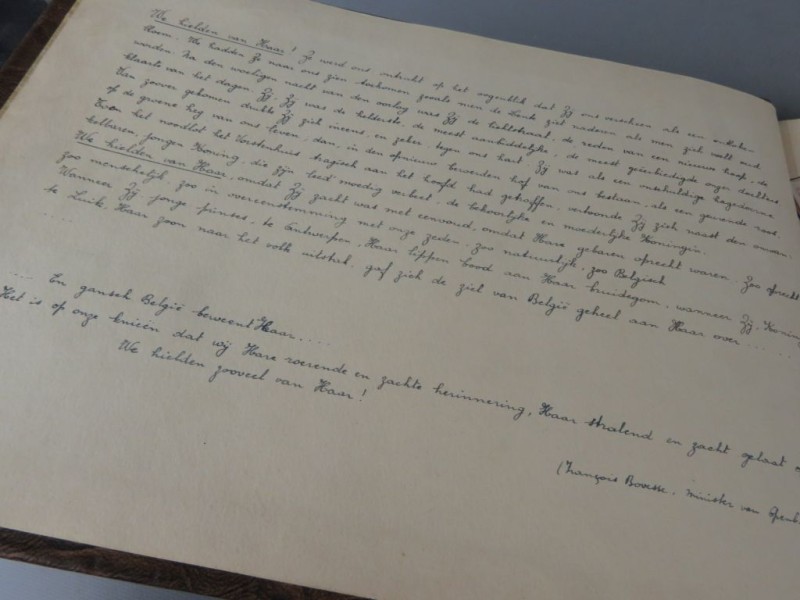 We hielden van Haar! Zij werd ons ontrukt op het oogenblik dat Zij ons verscheen als een ontloken
bloem. We hadden Ze naar ons zien toekomen zooals men de Lente ziet naderen als men ziek walt oud
worden. Na den nacht van den oorlog was Zij de lichtstraal, de reden van een nieuwe hoop, de
klaarte van het dagen. Zij, Zij was de helderste, de meest aanhiddelijke, de meest onzer dochters
Van zoover gekomen drukte Zij zich ineens, en zeker, tegen ons hart. Zij was als een onschuldige hagedoorn
op de groene heg van ons leven, dan, in den opnieuw hof van ons bestaan, als een gezonde roos.
Toen het noodlot het Vorstenhuis tragisch aan het hoofd had getroffen, vertoonde Zij zich naast den onver-
kelbaren, jongen Koning, die zijn leed moedig verbeet, de bekoorlijke en moederlijke Koningin.
We hielden van Haar, omdat Zij zacht was met eenvoud, omdat Hare gebaren oprecht waren. Zoo oprecht
zoo menschelijk, zoo in overeenstemming met onze zeden, zoo natuurlijk, zoo Belgisch
Wanneer Zij, jonge prinses, te Antwerpen, Haar lippen bood aan Haar bruidegom, wanneer Zij, Koningin
te Luik, Haar zoon naar het volk uitstak, gaf zich de ziel van België geheel aan Haar over ......
....
.... En gansch België beweent Haar....
Het is op onze knieën dat wij Hare roerende en zachte herinnering, Haar stralend en zacht gelaat
We hielden zooveel van Haar!
(François Bovesse, minister van Openb